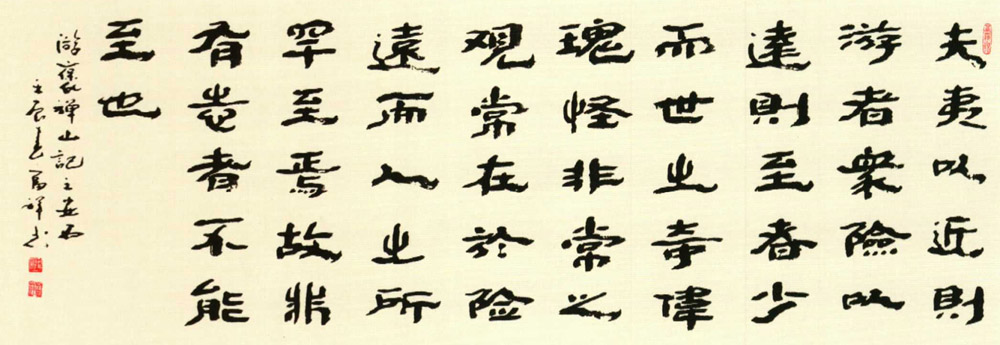 夫夷以近則
游者衆險以
達則至者少
而世之奇偉
瑰怪非常之
观常在於险
遠而人之所
罕至焉故非
有志者不能
至也
游褒禅山記
壬辰春